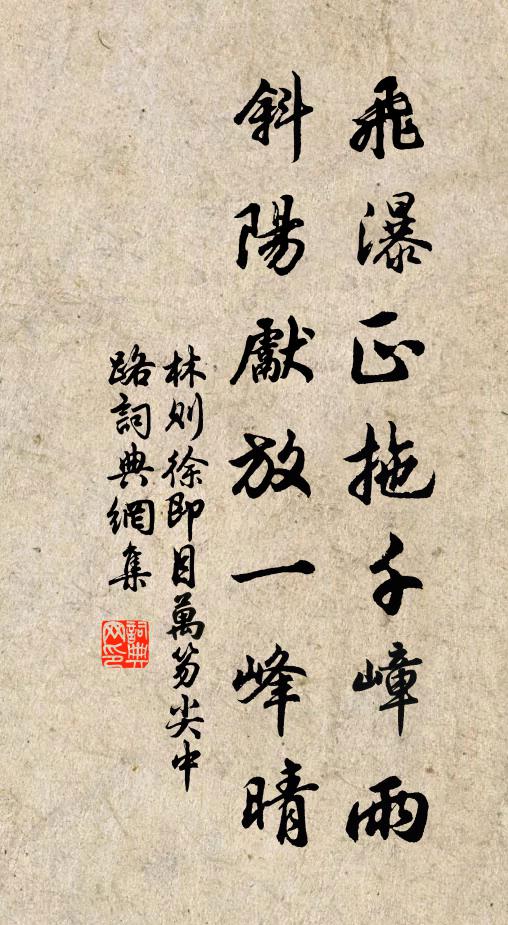 飛瀑正拖千嶂雨
斜陽獻放一峰晴
林則徐即目萬笏尖中
路詞典網集
詞典網印